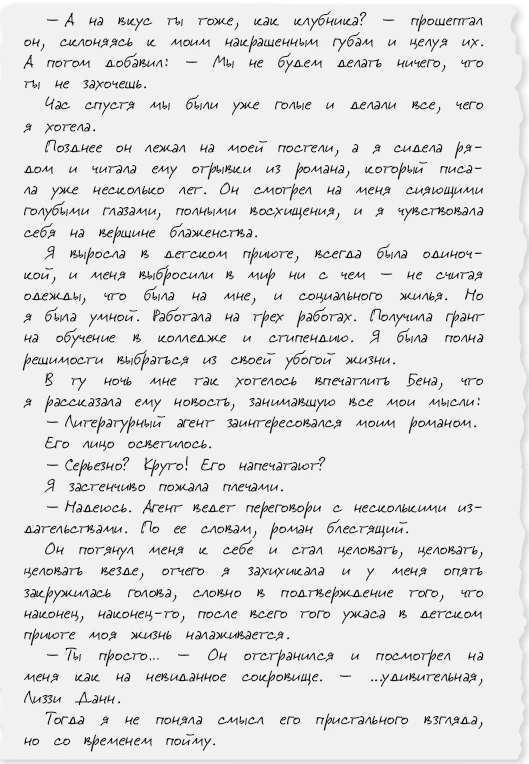 — А на вкус ты тоже, как клубника? — прошептал
он, склоняясь к моим накрашенным губам и целуя их.
А потом добавил: — Мы не будем делать ничего, что
ты не захочешь.
Час спустя мы были уже голые и делали все, чего
я хотела.
Позднее он лежал на моей постели, а я сидела ря-
дом и читала ему отрывки из романа, который писа-
ла уже несколько лет. Он смотрел на меня сияющими
голубыми глазами, полными восхищения, и я чувствовала
себя на вершине блаженства.
Я выросла в детском приюте, всегда была одиноч-
кой, и меня выбросили в мир ни с чем — не считая
одежды, что была на мне, и социального жилья. Но
я была умной. Работала на трех работах. Получила грант
на обучение в колледже и стипендию. Я была полна
решимости выбраться из своей убогой жизни.
В ту ночь мне так хотелось впечатлить Бена, что
я рассказала ему новость, занимавшую все мои мысли:
— Литературный агент заинтересовался моим романом.
Его лицо осветилось.
— Серьезно? Круто! Его напечатают?
Я застенчиво пожала плечами.
— Надеюсь. Агент ведет переговори с несколькими из-
дательствами. По ее словам, роман блестящий.
Он потянул меня к себе и стал целовать, целовать,
целовать везде, отчего я захихикала и у меня опять
закружилась голова, словно в подтверждение того, что
наконец, наконец-то, после всего того ужаса в детском
приюте моя жизнь налаживается.
— Ты просто... — Он отстранился и посмотрел на
меня как на невиданное сокровище. — ...удивительная,
Лиззи Данн.
Тогда я не поняла смысл его пристального взгляда,
но со временем пойму.